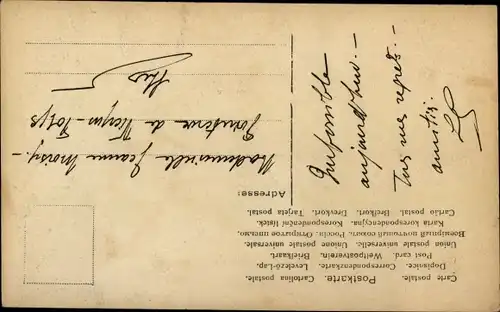 Postkarte.
Carte postale. Cartolina postale.
Dopisnice. Correspondenzkarte. Levelező-Lap.
Post card. Weltpostverein. Briefkaart.
Union postale universelle. Unione postale universale.
Всемірный почтовый союзъ. Россія. Открытое письмо.
Karta korespondencyjna. Korespondenční lístek.
Cartão postal. Brefkort. Brevkort. Tarjeta postal.
Adresse:
Mademoiselle Jeanne
de
Impossible
aujourd'hui. —
Tous mes regrets. —
amitiés.